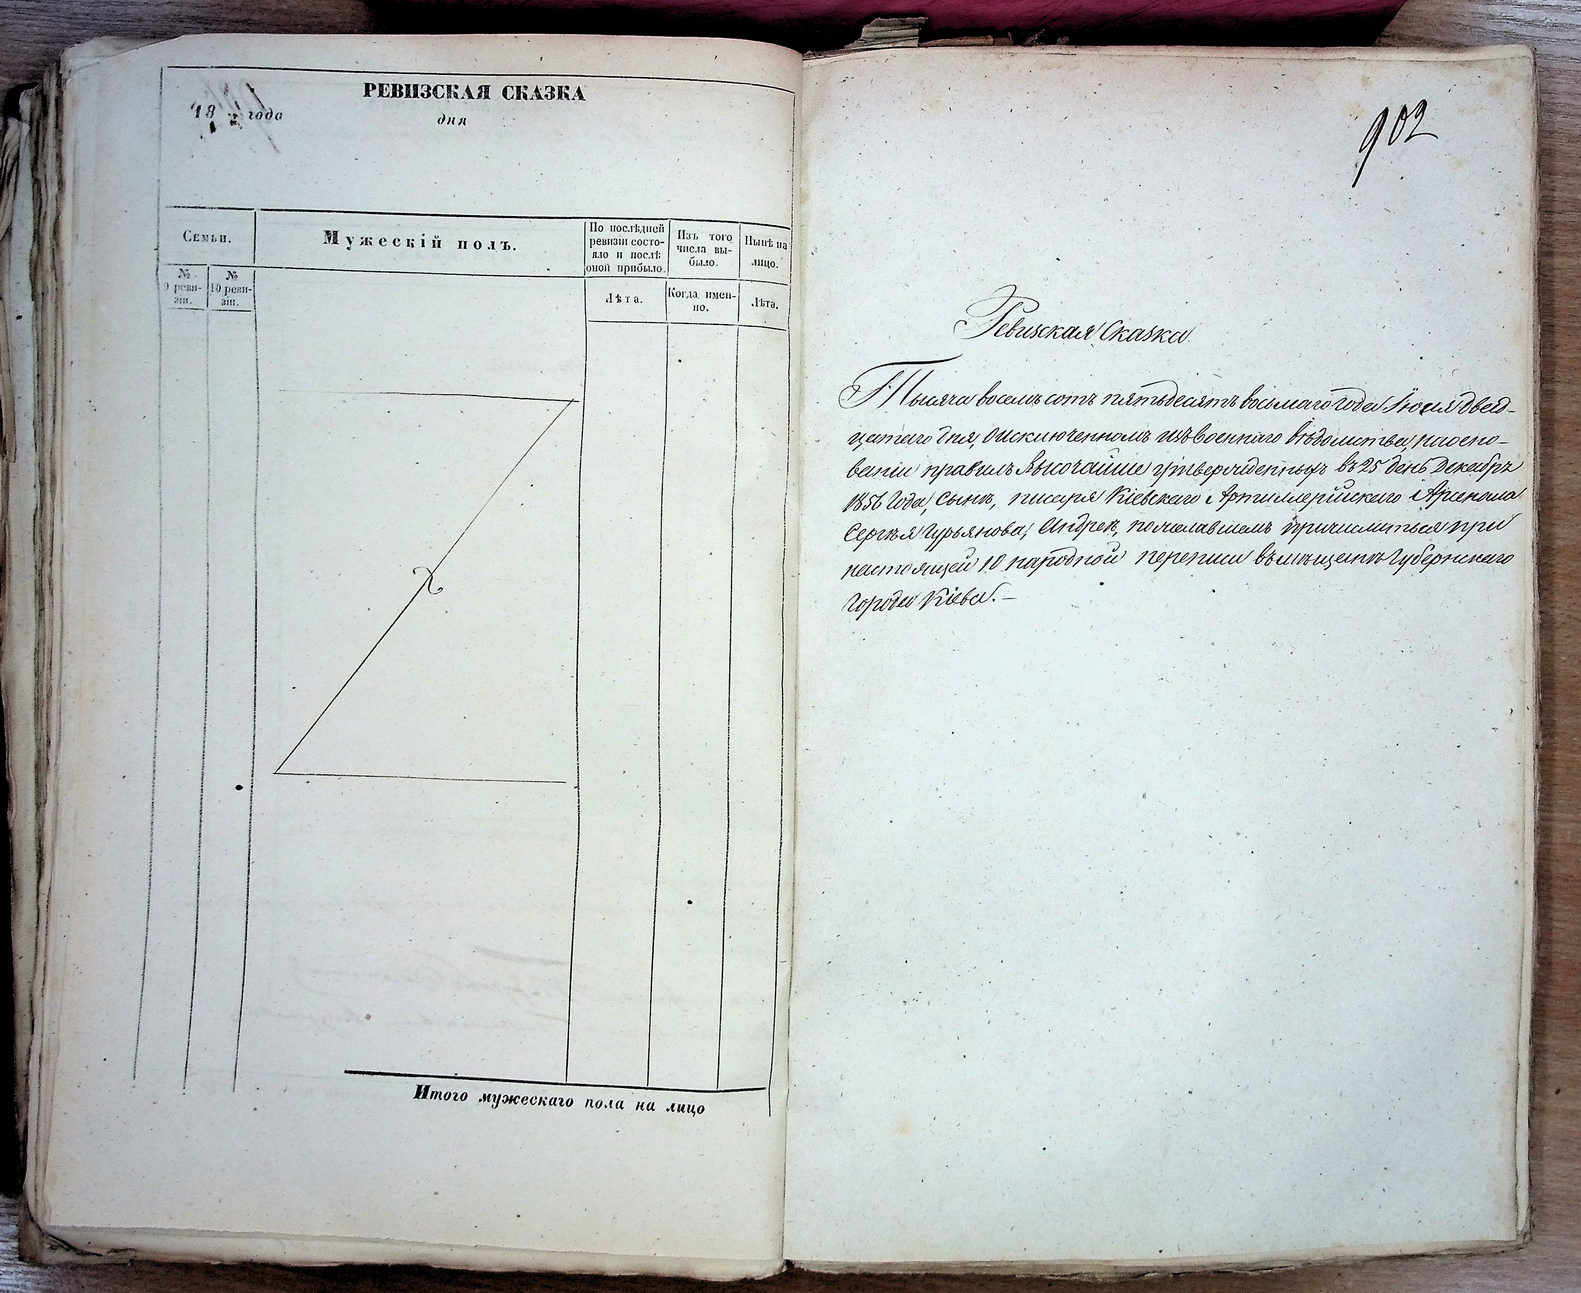 РЕВИЗСКАЯ СКАЗКА
18 года
дня
Семьи.
Мужескій полъ.
По послѣдней ревизіи состо-
яло и послѣ
оной прибыло.
Изъ того
числа вы-
было.
Нынѣ на
лицо.
№
9 реви-
зіи.
№
10 реви-
зіи.
Лѣта.
Когда имен-
но.
Лѣта.
Итого мужескаго пола на лицо
902
Ревизская Сказка
Тысяча восемь сотъ пятьдесятъ восьмаго года Іюня двад-
цатаго дня, о исключенномъ изъ военнаго вѣдомства, на осно-
ваніи правилъ Высочайше утвержденныхъ въ 25 день Декабря
1856 года, сынѣ, писаря Кіевскаго Артиллерійскаго Арсенала
Сергѣя Гурьянова, Андреѣ, пожелавшемъ причислиться при
настоящей 10 народной переписи въ мѣщане Губернскаго
города Кіева. —